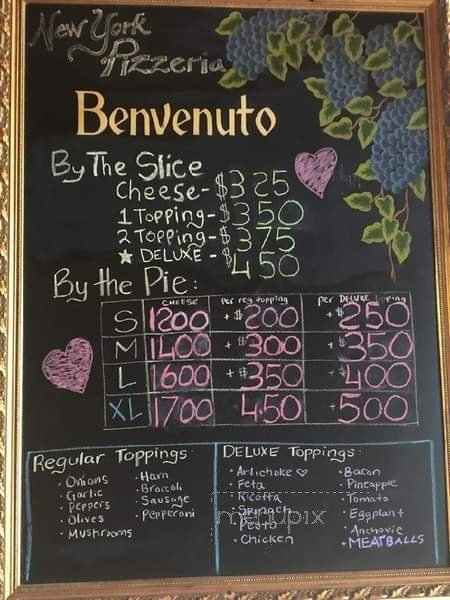 New York
Pizzeria
Benvenuto
By The Slice
Cheese - $3 25
1 Topping - $3 50
2 Topping - $3 75
★ DELUXE - $4 50
By the Pie:
CHEESE per reg topping per DELUXE topping
S 1200 + $200 + $250
M 1400 + $300 + $350
L 1600 + $350 + $400
XL 1700 4.50 + 500
Regular Toppings:
• Onions
• Garlic
• Peppers
• Olives
• Mushrooms
• Ham
• Broccoli
• Sausage
• Pepperoni
DELUXE Toppings:
• Artichoke ♡
• Feta
• Ricotta
• Spinach
• Pesto
• Chicken
• Bacon
• Pineapple
• Tomato
• Eggplant
• Anchovie
• MEATBALLS
menupix